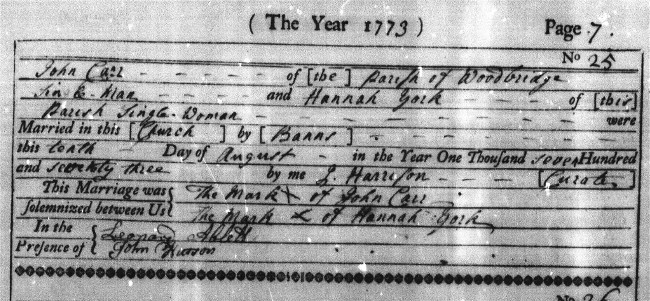 ( The Year 1773 ) Page 7.
No 25
John Carr of [the] Parish of Woodbridge
Single Man and Hannah York of [this]
Parish Single-Woman were
Married in this [Church] by [Banns]
this tenth Day of August in the Year One Thousand seven Hundred
and seventy three by me J. Harrison [Curate]
This Marriage was { The Mark X of John Carr
solemnized between Us { The Mark X of Hannah York
In the { Leonard
Presence of { John
No 26